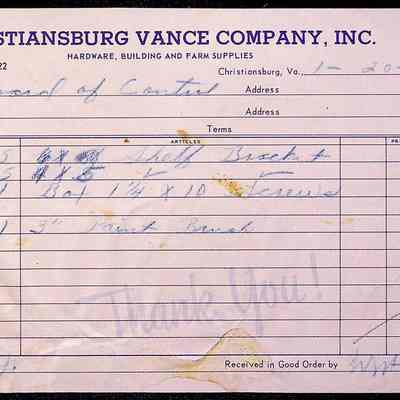 STIANSBURG VANCE COMPANY, INC.
HARDWARE, BUILDING AND FARM SUPPLIES
22
Christiansburg, Va., 1-20-
oard of Control Address
Address
Terms
ARTICLES PR
5 Shelf Bracket
5 4 x 5
1 Box 1 1/4 x 10 Screws
1 3" Paint Brush
Thank You!
Received in Good Order by